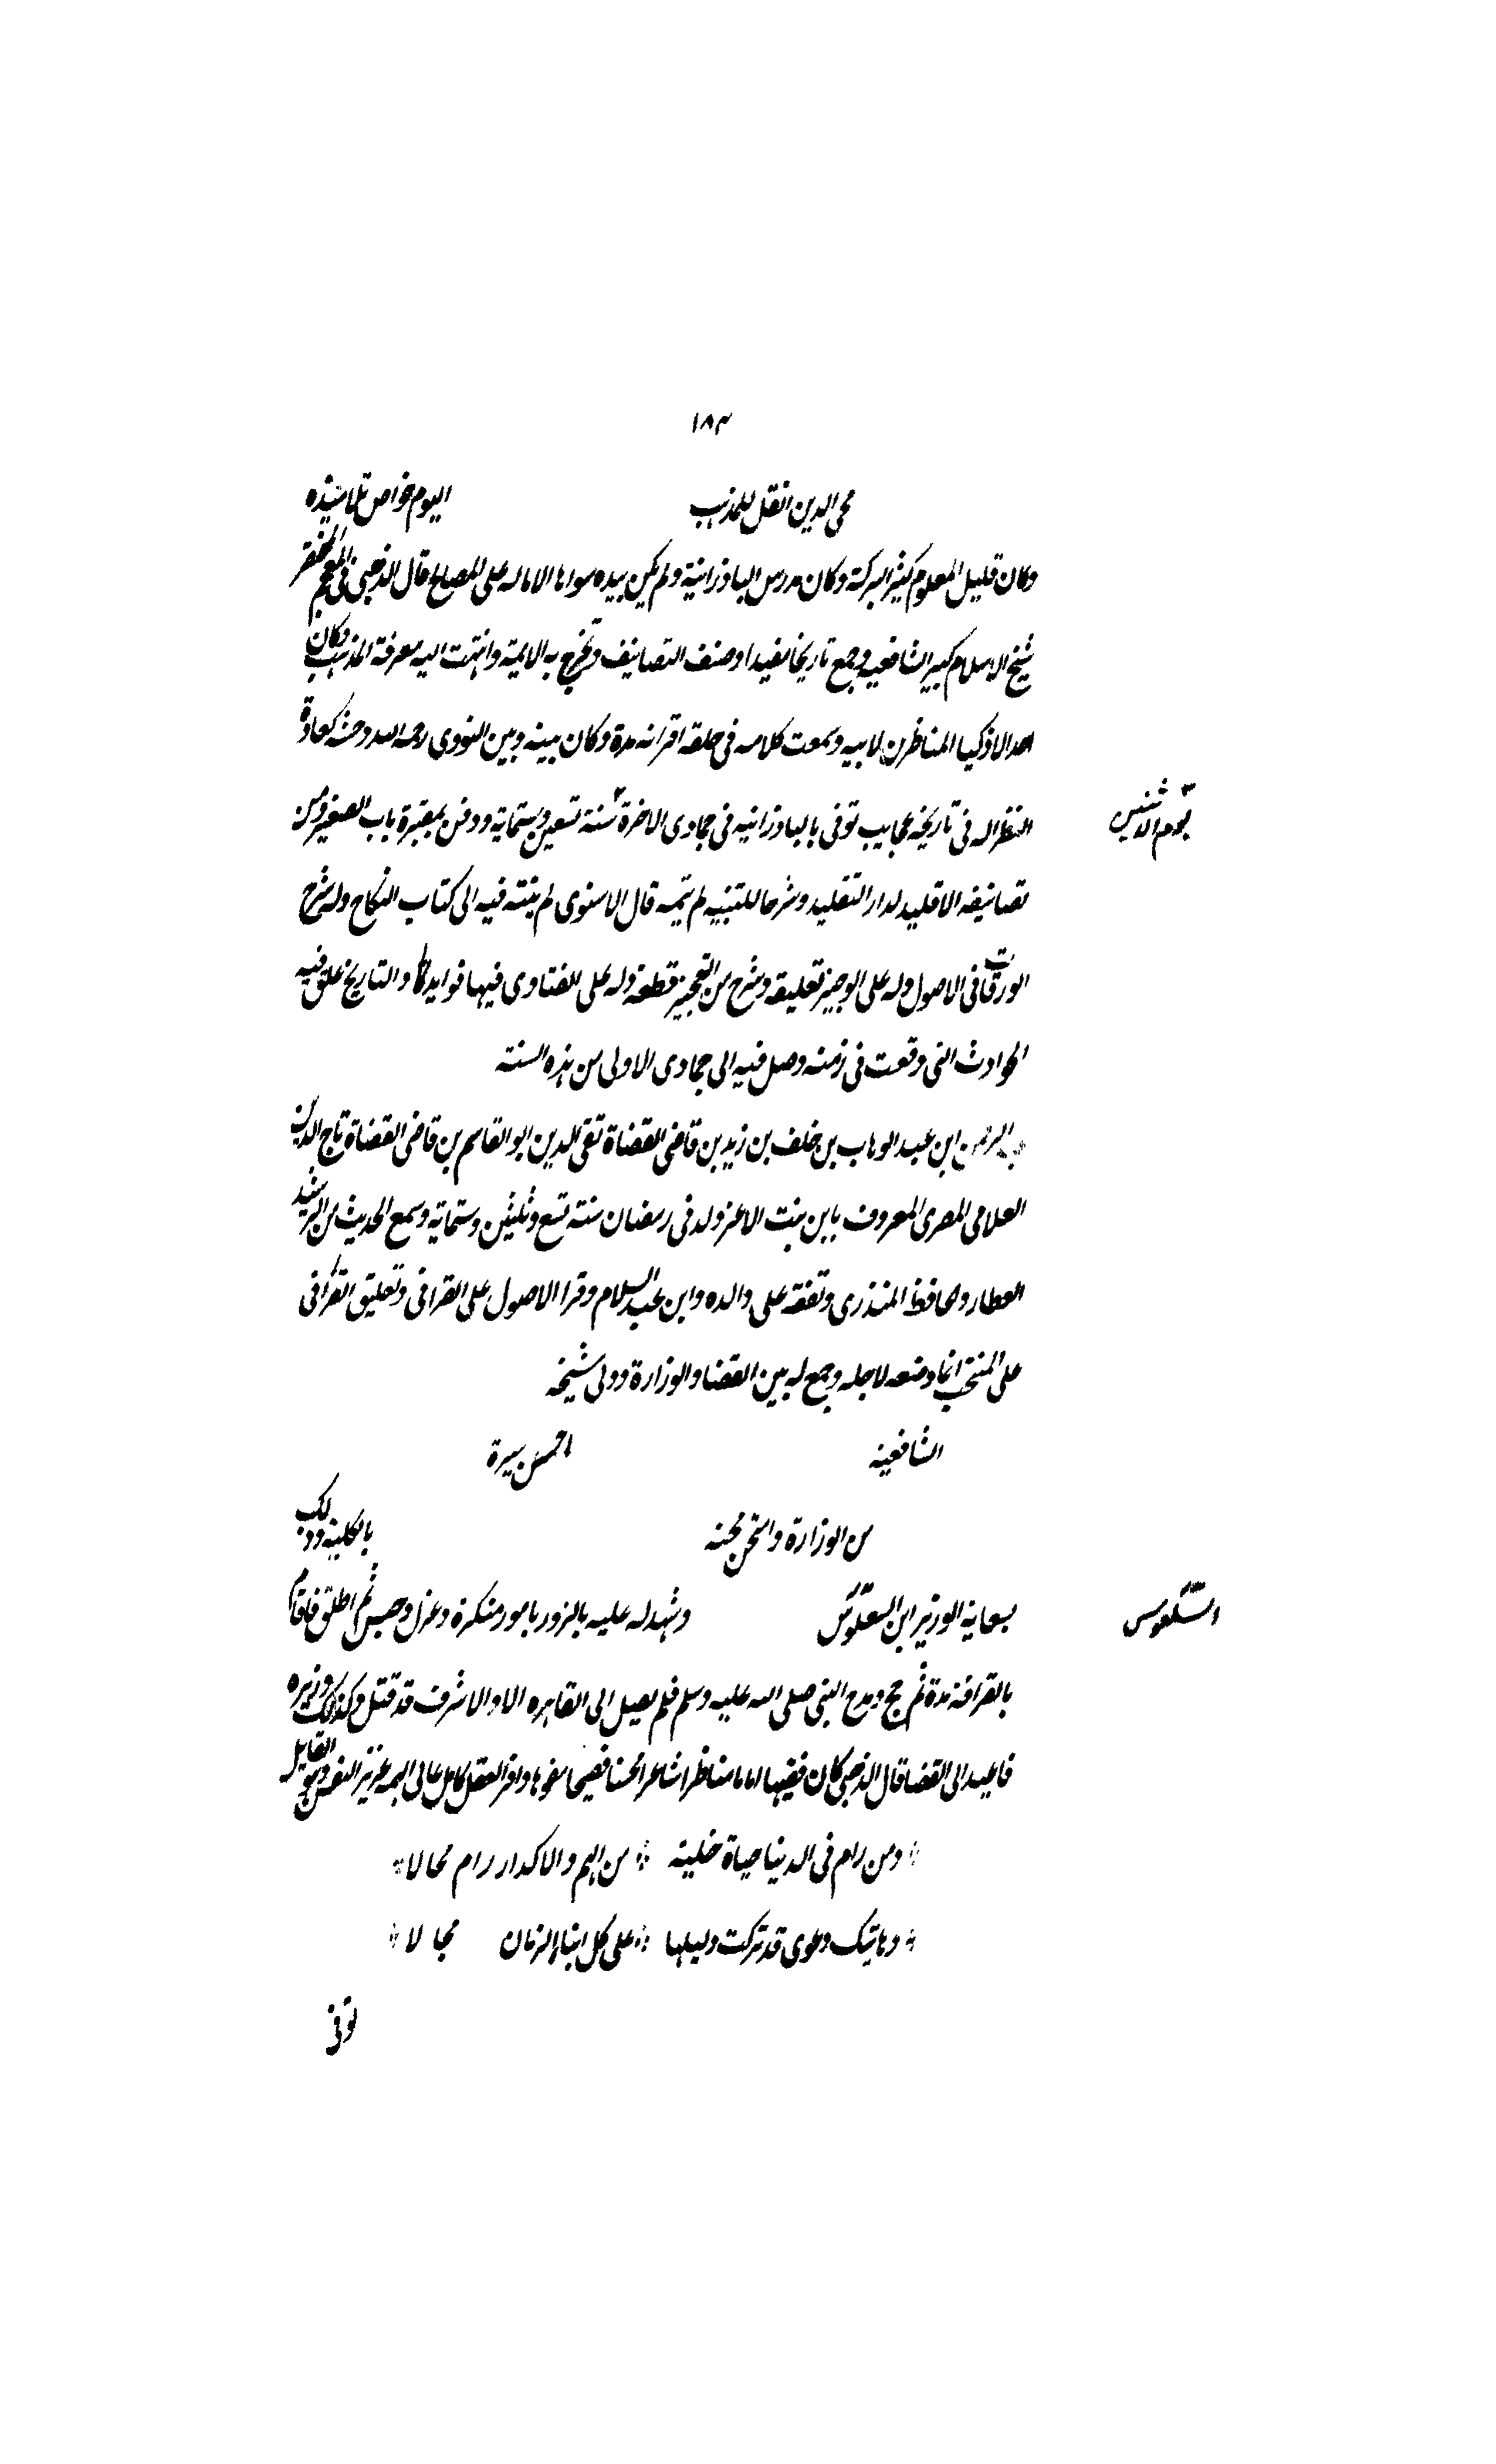 ١٨٣
محى الدين انقل للمذهب اليوم خواص تلاميذه
وكان قليل المعلوم كثير البركة وكان مدرس الباذرانية ولم يكن بيده سواها الا ماله على المصالح قال الذهبى فى المعجم المختصر
شيخ الاسلام كبير الشافعيه وجمع تاريخا مفيدا وصنف التصانيف وتخرج به الايمة وانتهت اليه معرفة المذهب وكان
احد الاذكيا المناظرين لابيه وسمعت كلامه فى حلقه اقرانه مدة وكان بينه وبين النووى رحمه الله وحشة كعادة
النظر اله فى تاريخه عجايب توفى بالباذرانيه فى جمادى الاخرة سنة تسعين وستماية ودفن بمقبرة باب الصغير ومن
يوم الاثنين
تصانيفه الاقليد لدار التقليد وشرحا للتنبيه لم يتمه قال الاسنوى لم ينته فيه الى كتاب النكاح وله شرح
الورقات فى الاصول وله على الوجيز تعليقه وشرح من التعجيز قطعة وله على الفتاوى فيها فوايد والتاريخ علق فيه
الحوادث التى وقعت فى زمنه وصل فيه الى جمادى الاولى من هذه السنة
عبد الرحمن ابن عبد الوهاب بن خلف بن زيد بن قاضى القضاة تقى الدين ابو القاسم بن قاضى القضاة تاج الدين
العلامى المصرى المعروف بابن بنت الاعز ولد فى رمضان سنة تسع وثلثين وستماية وسمع الحديث من الرشيد
العطار والحافظ المنذرى وتفقه على والده وابن عبد السلام وقرا الاصول على القرافى وتعليق القرافى
على المنتخب انما وضعه لاجله وجمع له بين القضا والوزارة وولى شيخه
الشافعية احسن سيرة
من الوزارة وامتحن محنه بالكلية وذلك
بسعاية الوزير ابن السعلوس وشهد له عليه بالزور بامور منكرة وعزل وحبس ثم اطلق فاقام
السلعوس
بالقرافة مدة ثم حج ومدح النبى صلى الله عليه وسلم فلم يصل الى القاهره الا والاشرف قد قتل وكذلك وزيره
فاعيد الى القضا قال الذهبى كان فقيها اماما مناظرا شاعرا محسنا فصيحا مفوها وافر العقل كامل عالى الهمه عزيز النفس وهو القايل
ومن رام فى الدنيا حياة خلية * من الهم والاكدار رام محالا *
* وهاتيك دعوى قد تركت دليلها * على كل ابناء الزمان محالا *
توفى